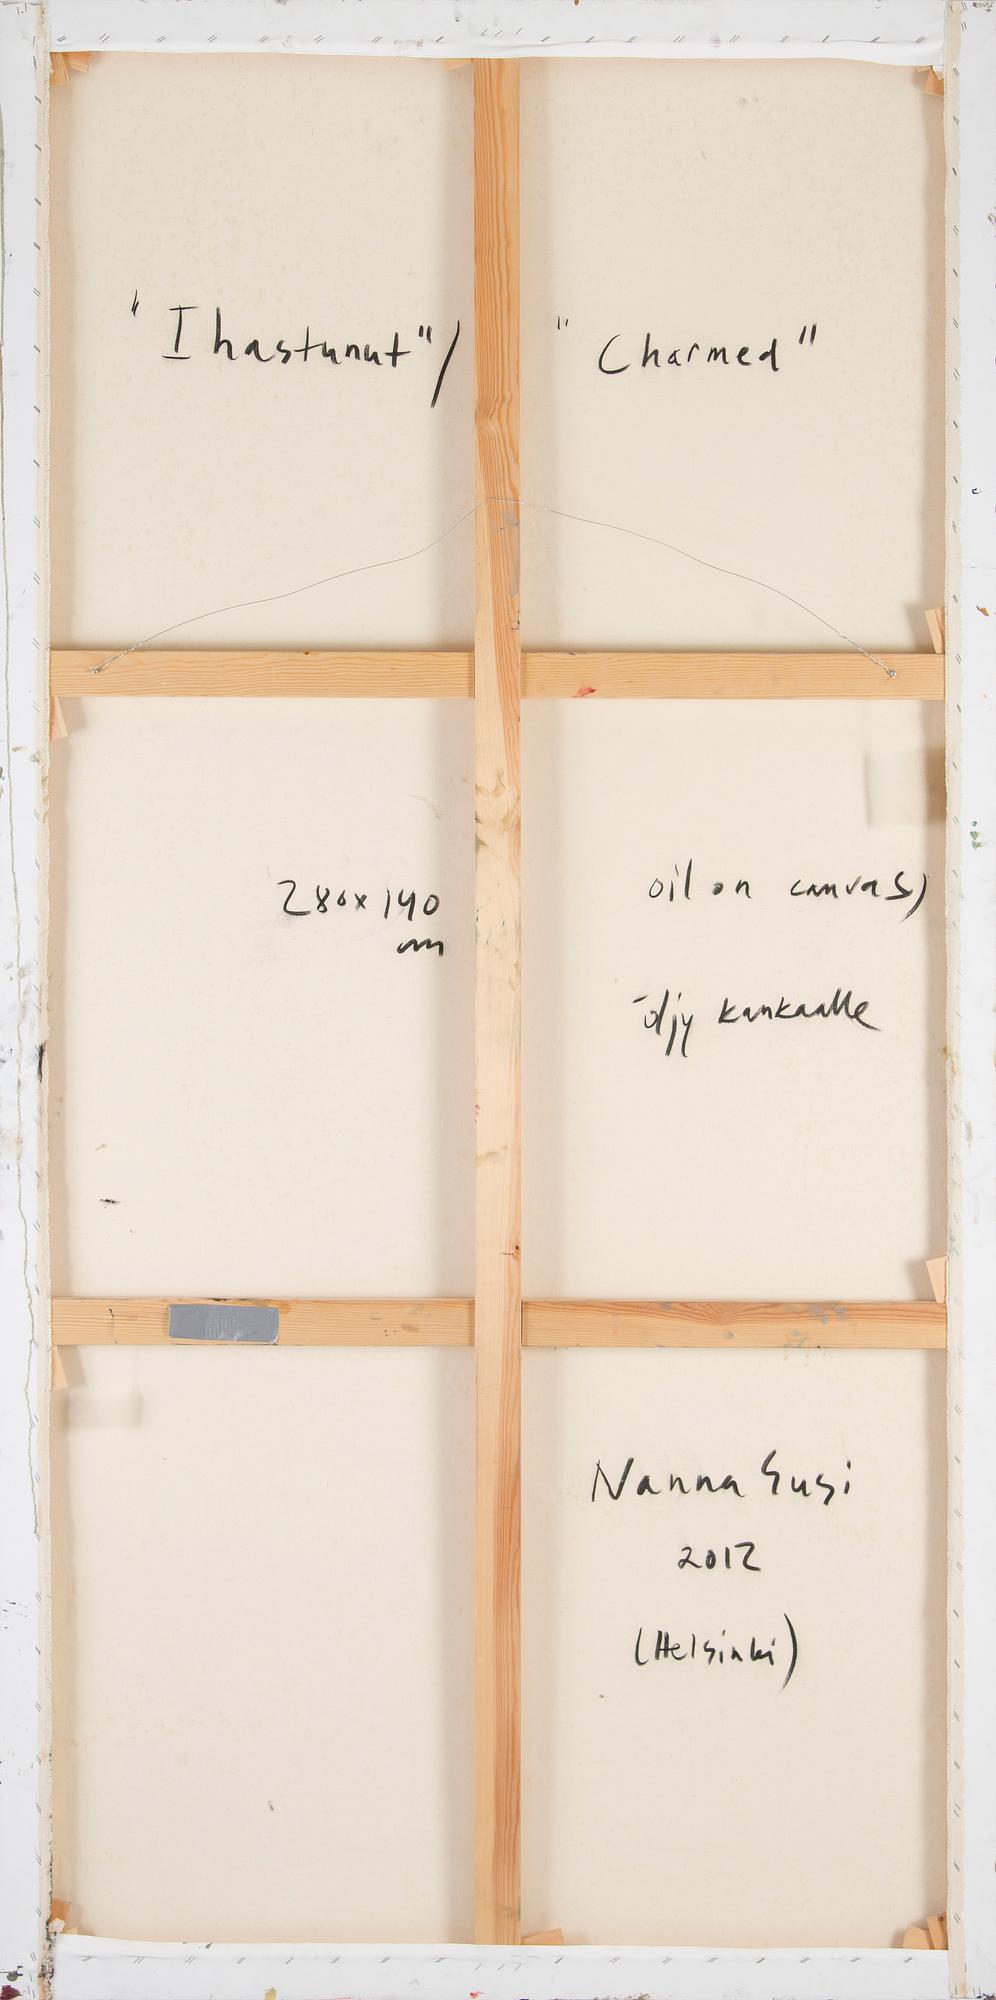 "Ihastunut"/ "Charmed"
280x140
cm
oil on canvas)
öljy kankaalle
Nanna Susi
2012
(Helsinki)